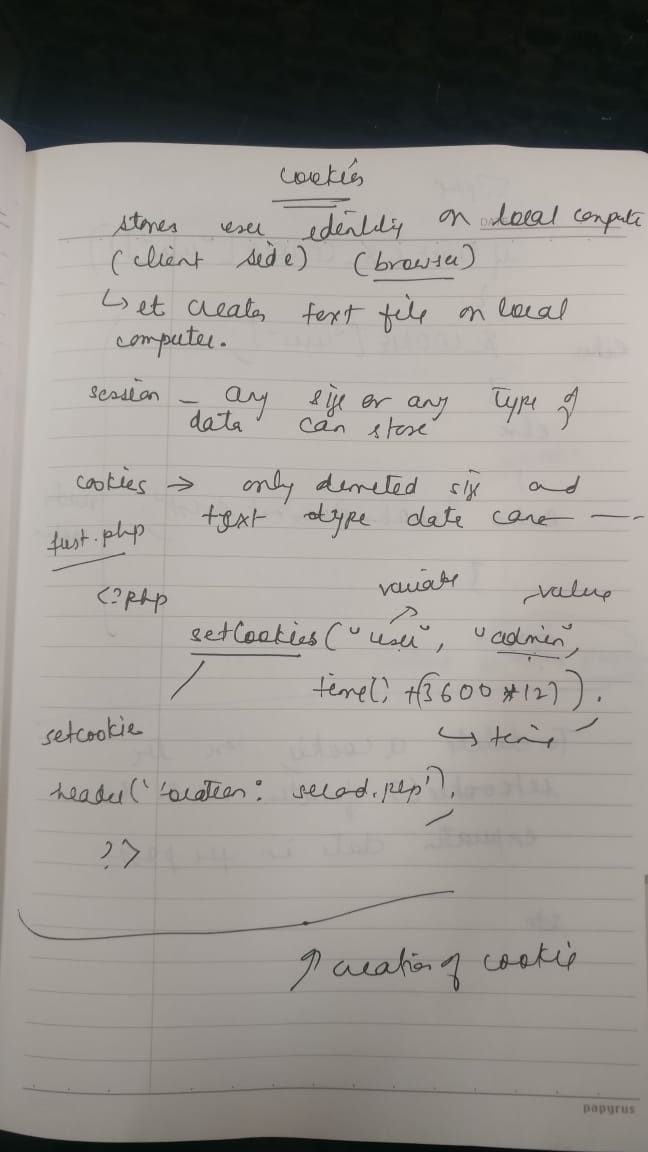 cookies
stores user identity on local compute
(client side) (browser)
↳ et creates text file on local
computer.
session – any size or any type of
data can store
cookies → only limited size and
text type date can
first.php
variable value
<?php
setCookies("user", "admin",
time() +(3600*12)).
↳ time
setcookie
header("location: second.php").
?>
↑ creation of cookie
papyrus